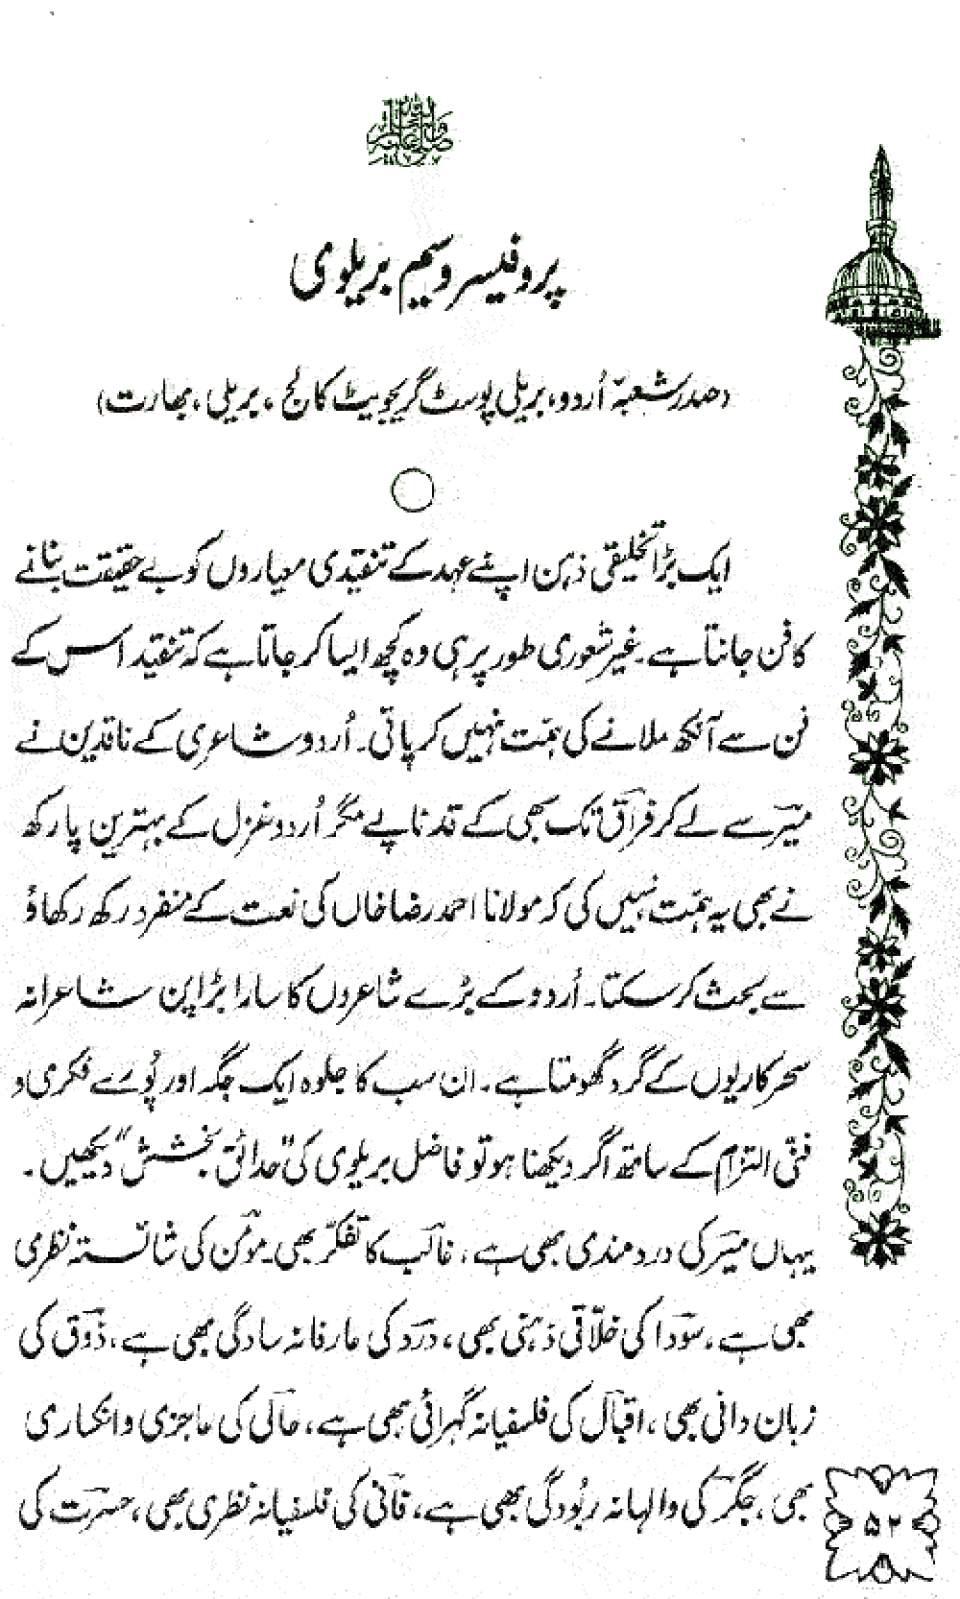 صلی اللہ علیہ وسلم
پروفیسر وسیم بریلوی
(صدر شعبۂ اُردو، بریلی پوسٹ گریجویٹ کالج، بریلی، بھارت)
ایک بڑا تخلیقی ذہن اپنے عہد کے تنقیدی معیاروں کو بے حقیقت بنانے
کا فن جانتا ہے۔ غیر شعوری طور پر ہی وہ کچھ ایسا کر جاتا ہے کہ تنقید اس کے
فن سے آنکھ ملانے کی ہمّت نہیں کر پاتی۔ اُردو شاعری کے ناقدین نے
میرؔ سے لے کر فراقؔ تک سبھی کے قد ناپے مگر اُردو غزل کے بہترین پارکھ
نے بھی یہ ہمّت نہیں کی کہ مولانا احمد رضا خاں کی نعت کے منفرد رکھ رکھاؤ
سے بحث کر سکتا۔ اُردو کے بڑے شاعروں کا سارا بڑا پن شاعرانہ
سحر کاریوں کے گرد گھومتا ہے۔ ان سب کا جلوہ ایک جگہ اور پُورے فکری و
فنّی التزام کے ساتھ اگر دیکھنا ہو تو فاضل بریلوی کی "حدائق بخشش" دیکھیں۔
یہاں میرؔ کی درد مندی بھی ہے، غالبؔ کا تفکّر بھی۔ مومنؔ کی شائستہ نظری
بھی ہے۔ سوداؔ کی خلّاقی ذہنی بھی، دردؔ کی عارفانہ سادگی بھی ہے، ذوقؔ کی
زبان دانی بھی، اقبالؔ کی فلسفیانہ گہرائی بھی ہے، حالیؔ کی عاجزی و انکساری
بھی، جگرؔ کی والہانہ ربُودگی بھی ہے، فانیؔ کی فلسفیانہ نظری بھی، حسرتؔ کی
۵۲